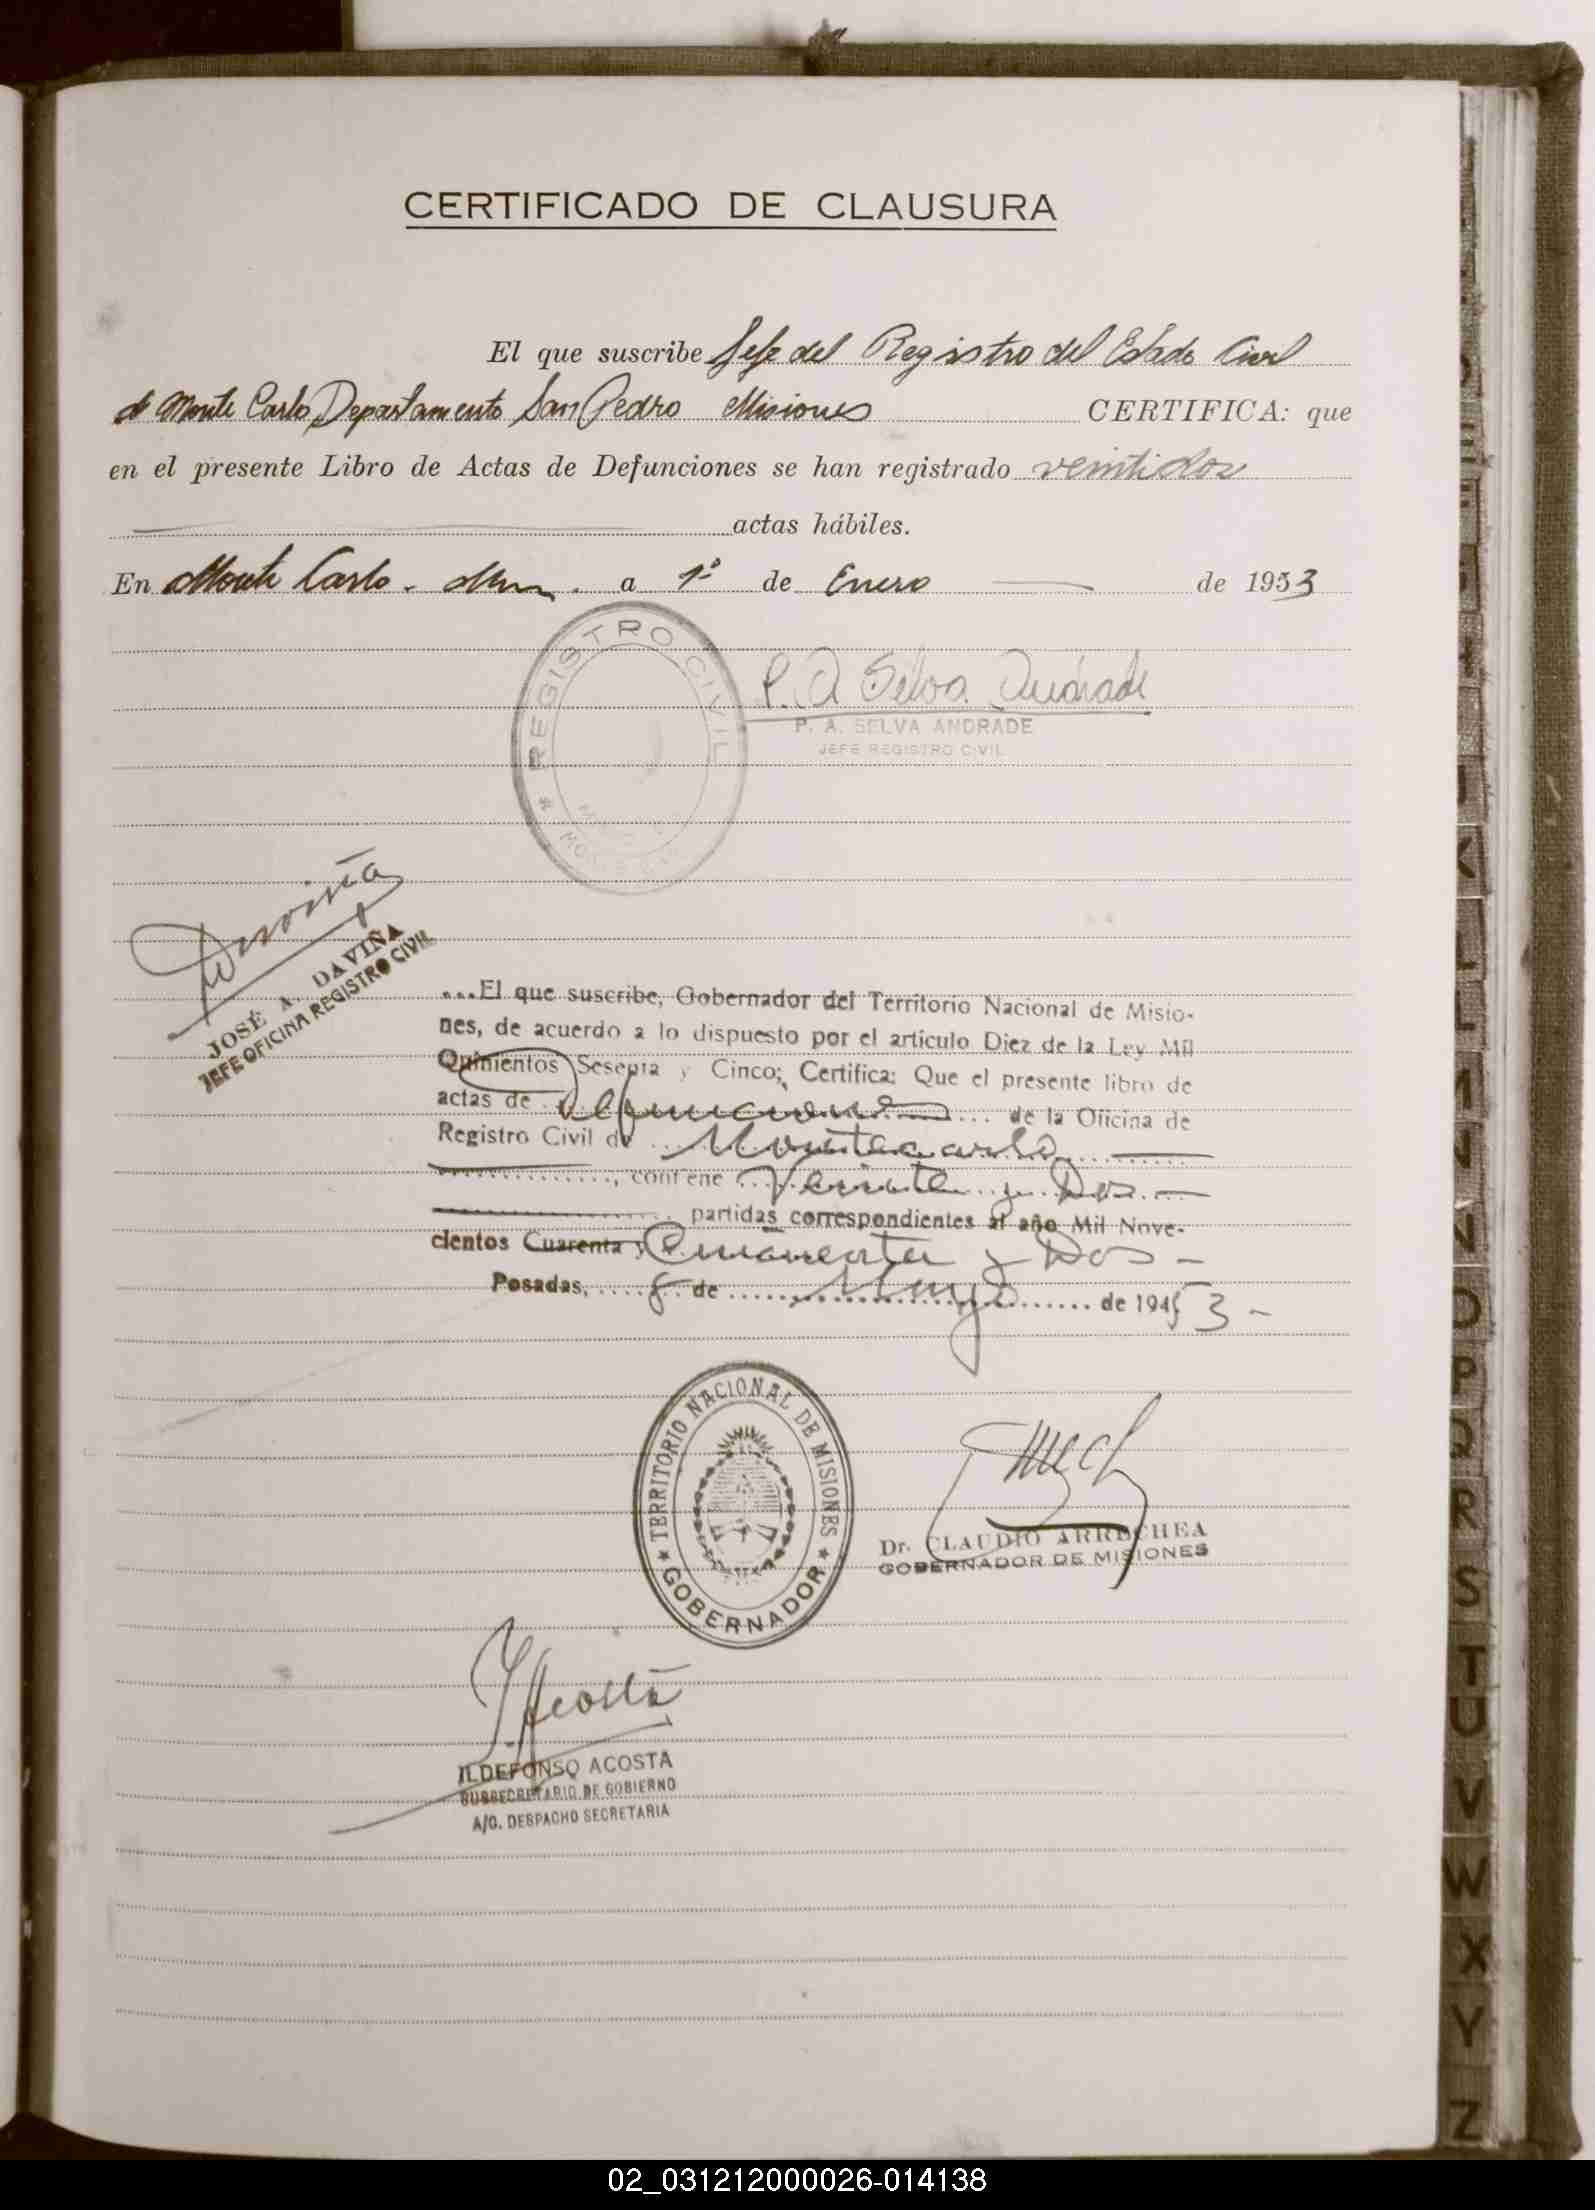 CERTIFICADO DE CLAUSURA
El que suscribe Jefe del Registro del Estado Civil
de Monte Carlo Departamento San Pedro Misiones CERTIFICA: que
en el presente Libro de Actas de Defunciones se han registrado veintidos
actas hábiles.
En Monte Carlo. a 1º de Enero de 1953
REGISTRO CIVIL
P. A Selva Andrade
P. A. SELVA ANDRADE
JEFE REGISTRO CIVIL
Daviña
JOSÉ A. DAVIÑA
JEFE OFICINA REGISTRO CIVIL
...El que suscribe, Gobernador del Territorio Nacional de Misio-
nes, de acuerdo a lo dispuesto por el artículo Diez de la Ley Mil
Quinientos Sesenta y Cinco; Certifica: Que el presente libro de
actas de Defunciones de la Oficina de
Registro Civil de Montecarlo
, contiene Veinte y Dos
partidas correspondientes al año Mil Nove-
cientos Cuarenta y Cincuenta y Dos -
Posadas, 8 de Mayo de 1953 -
TERRITORIO NACIONAL DE MISIONES
GOBERNADOR
Dr. CLAUDIO ARRECHEA
GOBERNADOR DE MISIONES
I Acosta
ILDEFONSO ACOSTA
SUBSECRETARIO DE GOBIERNO
A/C. DESPACHO SECRETARIA
K
L
LL
M
N
Ñ
O
P
Q
R
S
T
U
V
W
X
Y
Z
02_031212000026-014138